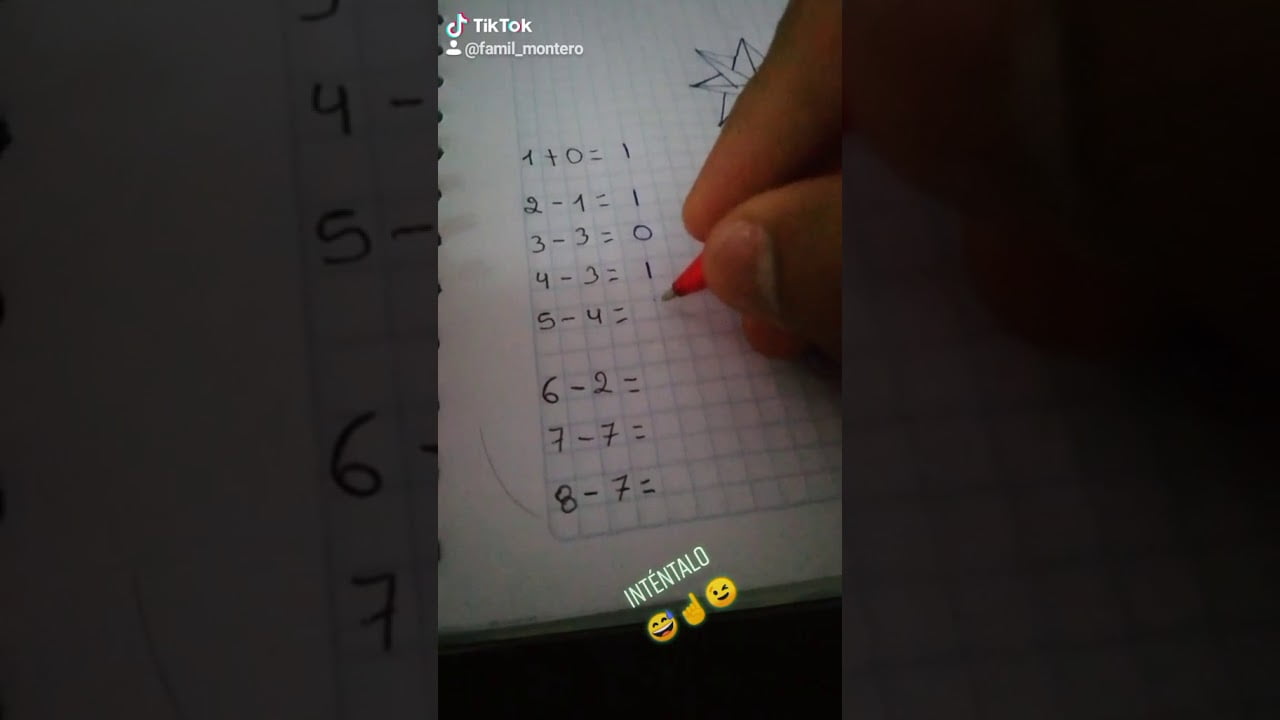 TikTok
@famil_montero
1+0= 1
2-1= 1
3-3= 0
4-3= 1
5-4=
6-2=
7-7=
8-7=
INTÉNTALO
😅☝️😉
4 -
5 -
6 -
7